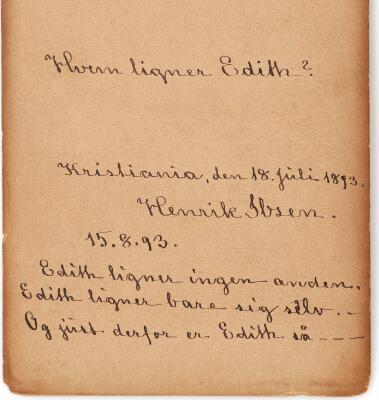 Hvem ligner Edith?
Kristiania, den 18. juli 1893.
Henrik Ibsen.
15.8.93.
Edith ligner ingen anden.
Edith ligner bare sig selv. –
Og just derfor er Edith så – – –